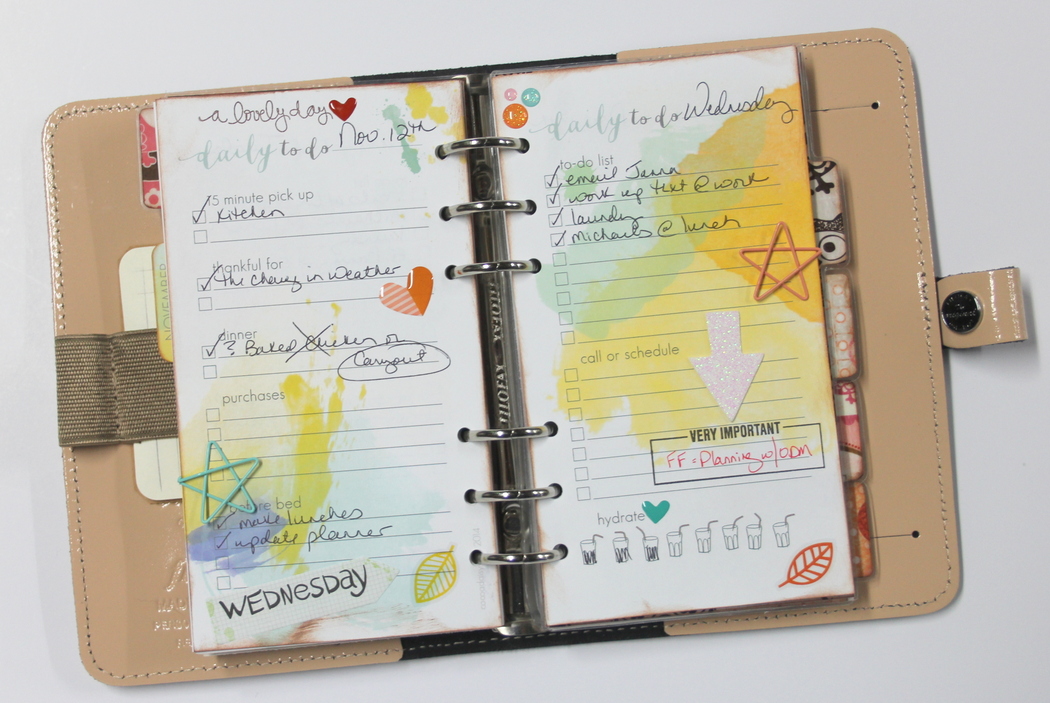 a lovely day
daily to do Nov. 12th
15 minute pick up
kitchen
thankful for
the change in weather
dinner
? Baked Chicken or
Carryout
purchases
before bed
make lunches
update planner
WEDNESDAY
daily to do Wednesday
to-do list
email Jenna
work up text @ work
laundry
Michaels @ lunch
call or schedule
VERY IMPORTANT
FF = Planning w/ODM
hydrate
NOVEMBER